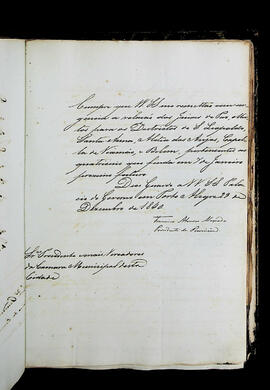 Cumpre que V. SS me remettão com ur-
gencia a relação dos Juizes de Paz, eleitos
para os Districtos de S. Leopoldo,
Santa Anna, Aldêa dos Anjos, Capel-
la de Viamão, e Belem, pertencentes ao
quatriennio que finda em 7 de Janeiro
proximo futuro
Deus Guarde a VV. SS. Pala-
cio do Governo em Porto Alegre 29 de
Dezembro de 18
Presidente da Provincia
Srs Presidente e mais Vereadores
da Camara Municipal desta
Cidade